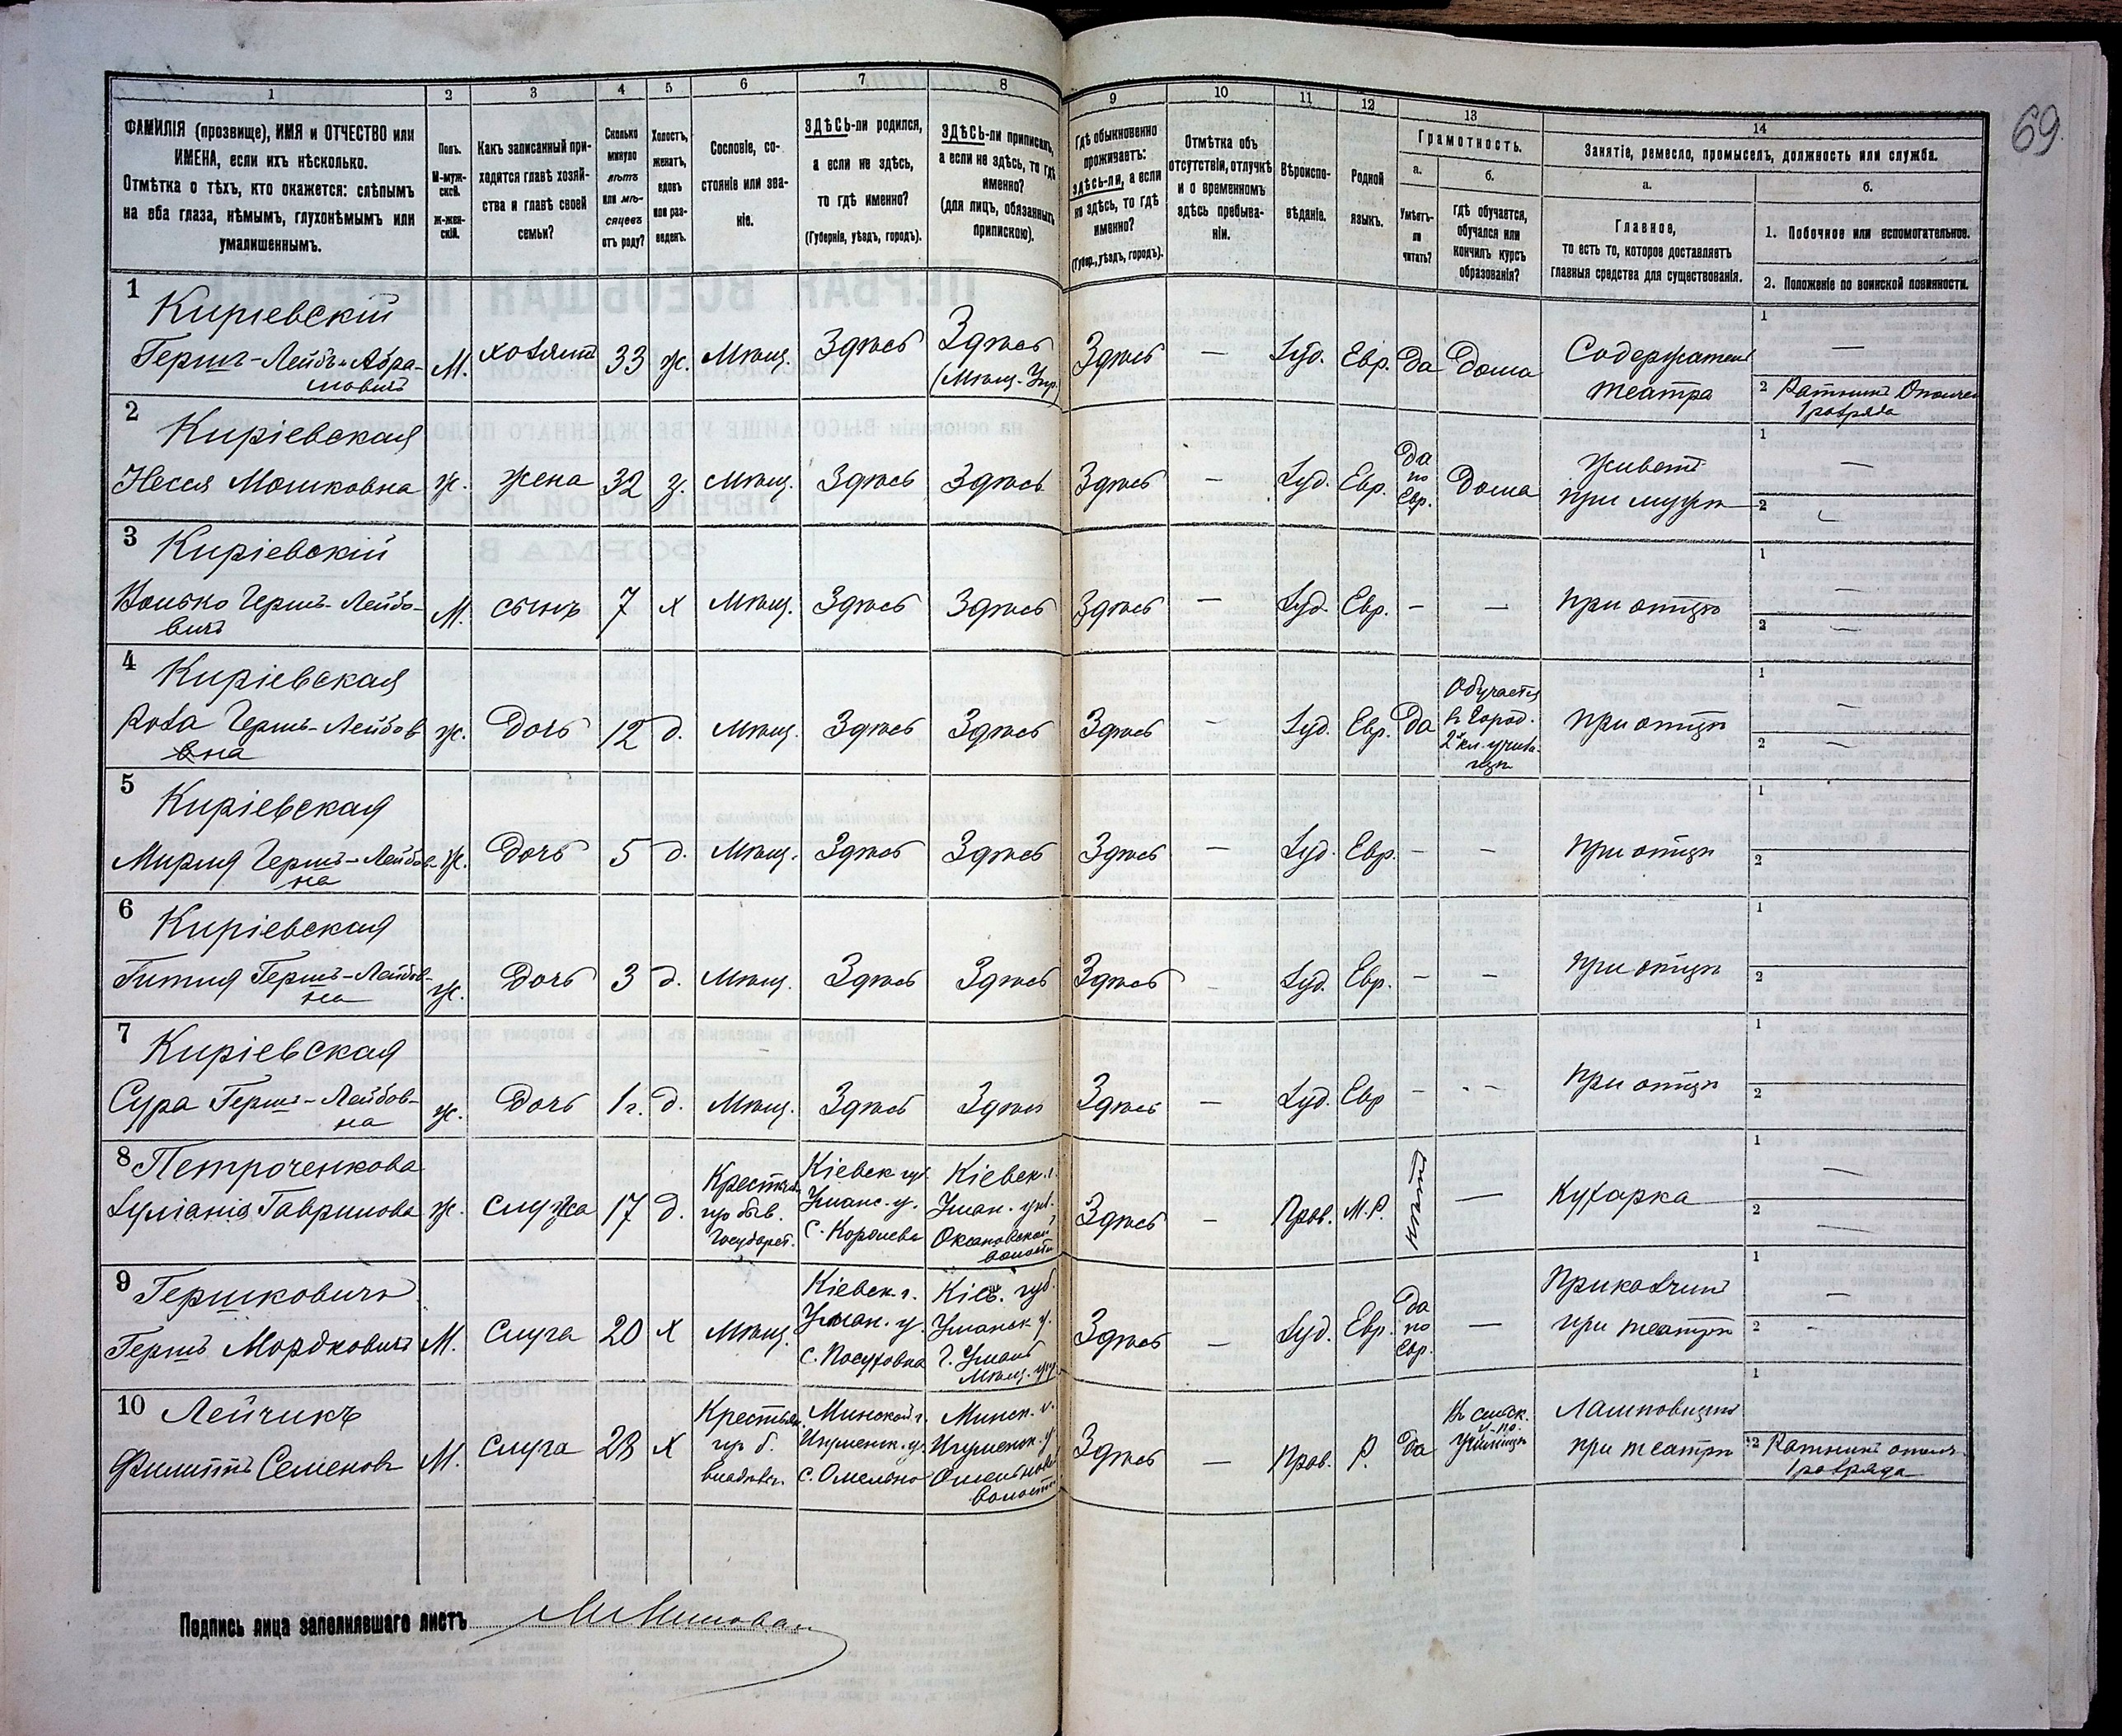 69
1 2 3 4 5 6 7 8 9 10 11 12 13 14
ФАМИЛІЯ (прозвище), ИМЯ и ОТЧЕСТВО или
ИМЕНА, если ихъ нѣсколько.
Отмѣтка о тѣхъ, кто окажется: слѣпымъ
на оба глаза, нѣмымъ, глухонѣмымъ или
умалишеннымъ.
Полъ.
М-муж-
ской.
Ж-жен-
скій.
Какъ записанный при-
ходится главѣ хозяй-
ства и главѣ своей
семьи?
Сколько
минуло
лѣтъ
или мѣ-
сяцевъ
отъ роду?
Холостъ,
женатъ,
вдовъ
или раз-
веденъ.
Сословіе, со-
стояніе или зва-
ніе.
ЗДѢСЬ-ли родился,
а если не здѣсь,
то гдѣ именно?
(Губернія, уѣздъ, городъ).
ЗДѢСЬ-ли приписанъ,
а если не здѣсь, то гдѣ
именно?
(для лицъ, обязанныхъ
припискою).
Гдѣ обыкновенно
проживаетъ:
здѣсь-ли, а если
не здѣсь, то гдѣ
именно?
(Губер., уѣздъ, городъ).
Отмѣтка объ
отсутствіи, отлучкѣ
и о временномъ
здѣсь пребыва-
ніи.
Вѣроиспо-
вѣданіе.
Родной
языкъ.
Грамотность.
а.
Умѣетъ-
ли
читать?
б.
гдѣ обучается,
обучался или
кончилъ курсъ
образованія?
Занятіе, ремесло, промыселъ, должность или служба.
а.
Главное,
то есть то, которое доставляетъ
главныя средства для существованія.
б.
1. Побочное или вспомогательное.
2. Положеніе по воинской повинности.
1
Киріевскій
Гершъ-Лейбъ Абра-
мовичъ
М. хозяинъ 33 ж. Мѣщ. Здѣсь
Здѣсь
(Мѣщ. Упр.)
Здѣсь — Іуд. Евр. Да Дома
Содержатель
театра
1 —
2 Ратникъ Ополчен
1 разряда
2
Киріевская
Несся Мошковна ж. жена 32 з. Мѣщ. Здѣсь Здѣсь Здѣсь — Іуд. Евр.
Да
по
Евр.
Дома
Живетъ
при мужѣ
1 —
2
3
Киріевскій
Волько Гершъ-Лейбо-
вичъ
М. сынъ 7 х Мѣщ. Здѣсь Здѣсь Здѣсь — Іуд. Евр. — — при отцѣ
1 —
2 —
4
Киріевская
Роза Гершъ-Лейбов
на
ж. Дочь 12 д. Мѣщ. Здѣсь Здѣсь Здѣсь — Іуд. Евр. Да
Обучается
в Город.
2 кл. учили-
щѣ
при отцѣ
1 —
2 —
5
Киріевская
Мирля Гершъ-Лейбов-
на
ж. Дочь 5 д. Мѣщ. Здѣсь Здѣсь Здѣсь — Іуд. Евр. — — при отцѣ
1
2
6
Киріевская
Гитля Гершъ-Лейбов-
на
ж. Дочь 3 д. Мѣщ. Здѣсь Здѣсь Здѣсь — Іуд. Евр. — — при отцѣ
1
2
7
Киріевская
Сура Гершъ-Лейбов-
на
ж. Дочь 1 г. д. Мѣщ. Здѣсь Здѣсь Здѣсь — Іуд. Евр — — при отцѣ
1
2
8 Петроченкова
Гаврилова ж. 17 д.
Кіевск. губ.
Уманс. у.
Кіевск. г.
Уман. уѣз.
волости
Здѣсь — Прав. М.Р. нѣтъ — Кухарка
1 —
2 —
9 Гершковичъ
Гершъ Мордковичъ М. Слуга 20 х Мѣщ.
Кіевск. г.
Уман. у.
с. Посуховка
Кіев. губ.
Уманск у.
г. Умань
Мѣщ. упр.
Здѣсь — Іуд. Евр.
Да
по
Евр.
—
Приказчикъ
при театрѣ
1 —
2 —
10 Лейчикъ
Филиппъ Семеновъ М. Слуга 28 х
Минской г.
Игуменск. у.
с. Омельно
Минск. г.
Игуменск. у.
волости
Здѣсь — Прав. Р. Да
при театрѣ
1
2 Ратникъ ополч.
1 разряда
Подпись лица заполнявшаго листъ